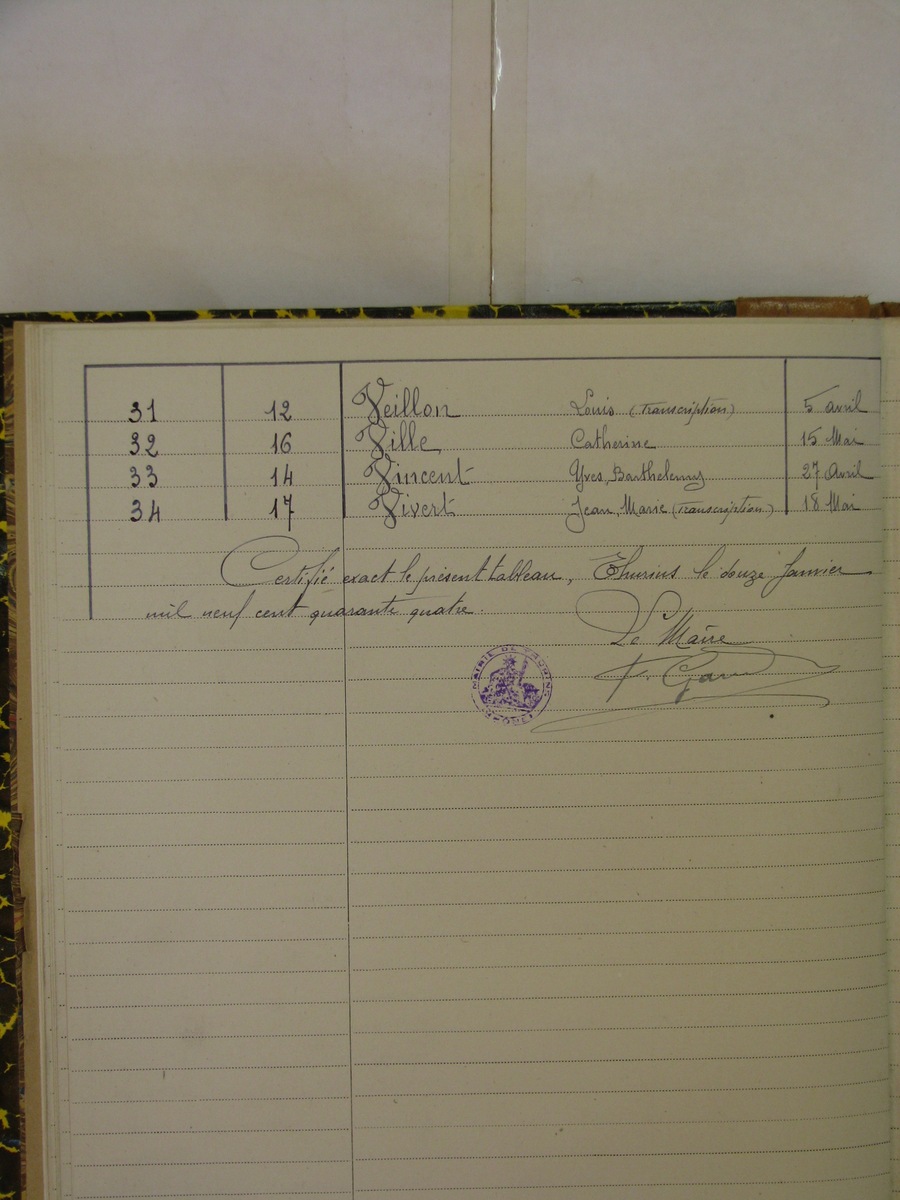 31 12 Veillon Louis (Transcription) 5 avril
32 16 Ville Catherine 15 Mai
33 14 Vincent Yves, Barthelemy 27 Avril
34 17 Vivert Jean, Marie (Transcription) 18 Mai
Certifié exact le présent tableau, Thurins le douze Janvier
mil neuf cent quarante quatre.
Le Maire
MAIRIE DE THURINS